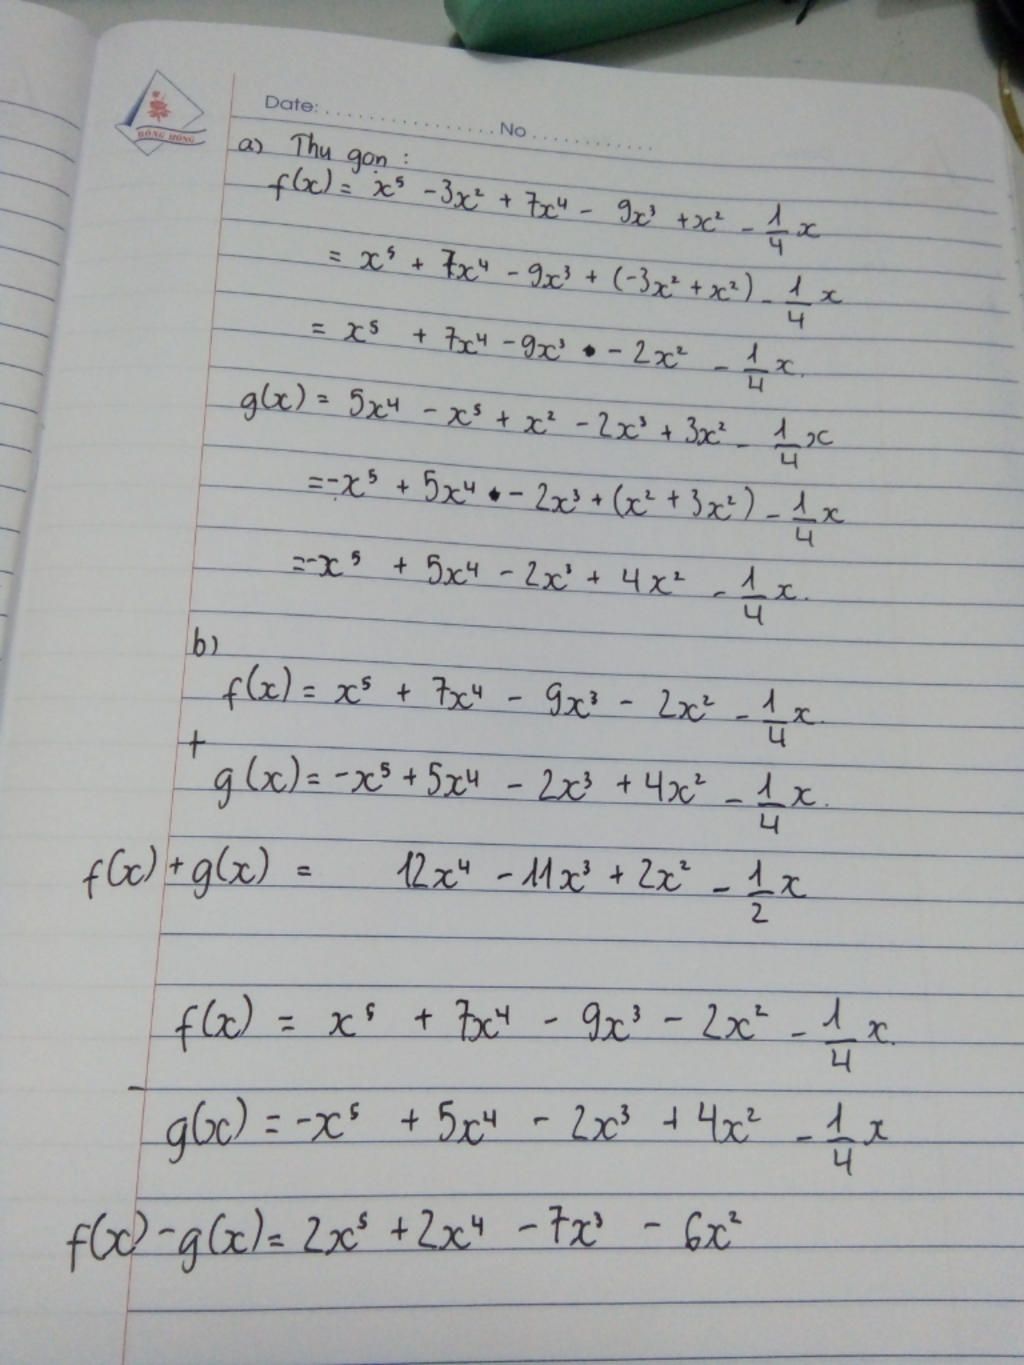 HỒNG HỒNG
Date: ................. No ............
a) Thu gọn :
f(x) = x⁵ - 3x² + 7x⁴ - 9x³ + x² - 1/4 x
= x⁵ + 7x⁴ - 9x³ + (-3x² + x²) - 1/4 x
= x⁵ + 7x⁴ - 9x³ - 2x² - 1/4 x.
g(x) = 5x⁴ - x⁵ + x² - 2x³ + 3x² - 1/4 x
= -x⁵ + 5x⁴ - 2x³ + (x² + 3x²) - 1/4 x
= -x⁵ + 5x⁴ - 2x³ + 4x² - 1/4 x.
b)
f(x) = x⁵ + 7x⁴ - 9x³ - 2x² - 1/4 x.
+
g(x) = -x⁵ + 5x⁴ - 2x³ + 4x² - 1/4 x.
f(x) + g(x) = 12x⁴ - 11x³ + 2x² - 1/2 x
f(x) = x⁵ + 7x⁴ - 9x³ - 2x² - 1/4 x.
-
g(x) = -x⁵ + 5x⁴ - 2x³ + 4x² - 1/4 x
f(x) - g(x) = 2x⁵ + 2x⁴ - 7x³ - 6x²